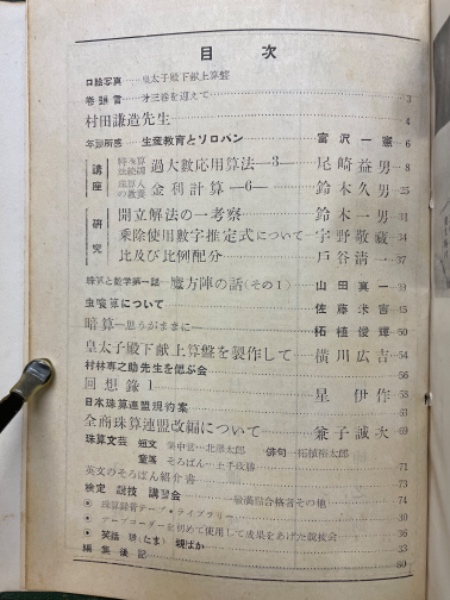 目次
口絵写真……皇太子殿下献上算盤
巻頭言……第三巻を迎えて……3
村田謙造先生……4
年頭所感 生産教育とソロバン……富沢一憲…6
講座 過大数応用算法—3—……尾崎益男…8
金利計算—6—……鈴木久男…25
研究 開立解法の一考察……鈴木一男…31
乗除使用数字推定式について…宇野敬蔵…34
比及び比例配分……戸谷清一…37
珠算と数学第一話 魔方陣の話(その1)…山田真一
虫喰算について……佐藤
暗算—思うがままに—……柘植俊輝…50
皇太子殿下献上算盤を製作して…横川広吉…54
村林専之助先生を偲ぶ会……56
回想録1……星伊作
日本珠算連盟規約案
全商珠算連盟改編について……兼子誠次…69
珠算文芸 短文 集中堂…北澤太郎 俳句—柘植裕太郎
童謡 そろばん…土手政勝……71
英文のそろばん紹介書……73
検定 競技 講習会……級満点合格者その他……74
珠算録音テープ・ライブラリー……30
テープコーダーを初めて使用して成果をあげた競技会
英語 球(たま)……36
編集後記……80